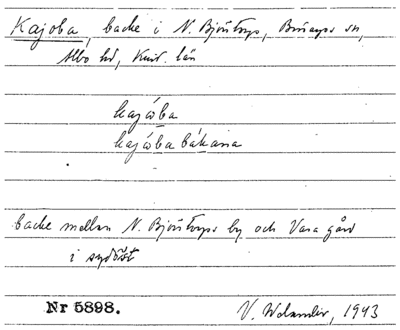 Kajoba, backe i N. Björstorps, Brösarps sn,
Albo hd, Krist. län
kajǻba
kajǻba bákana
backe mellan N. Björstorps by och Vara gård
i sydöst
Nr 5898.
V. Wolander, 1943